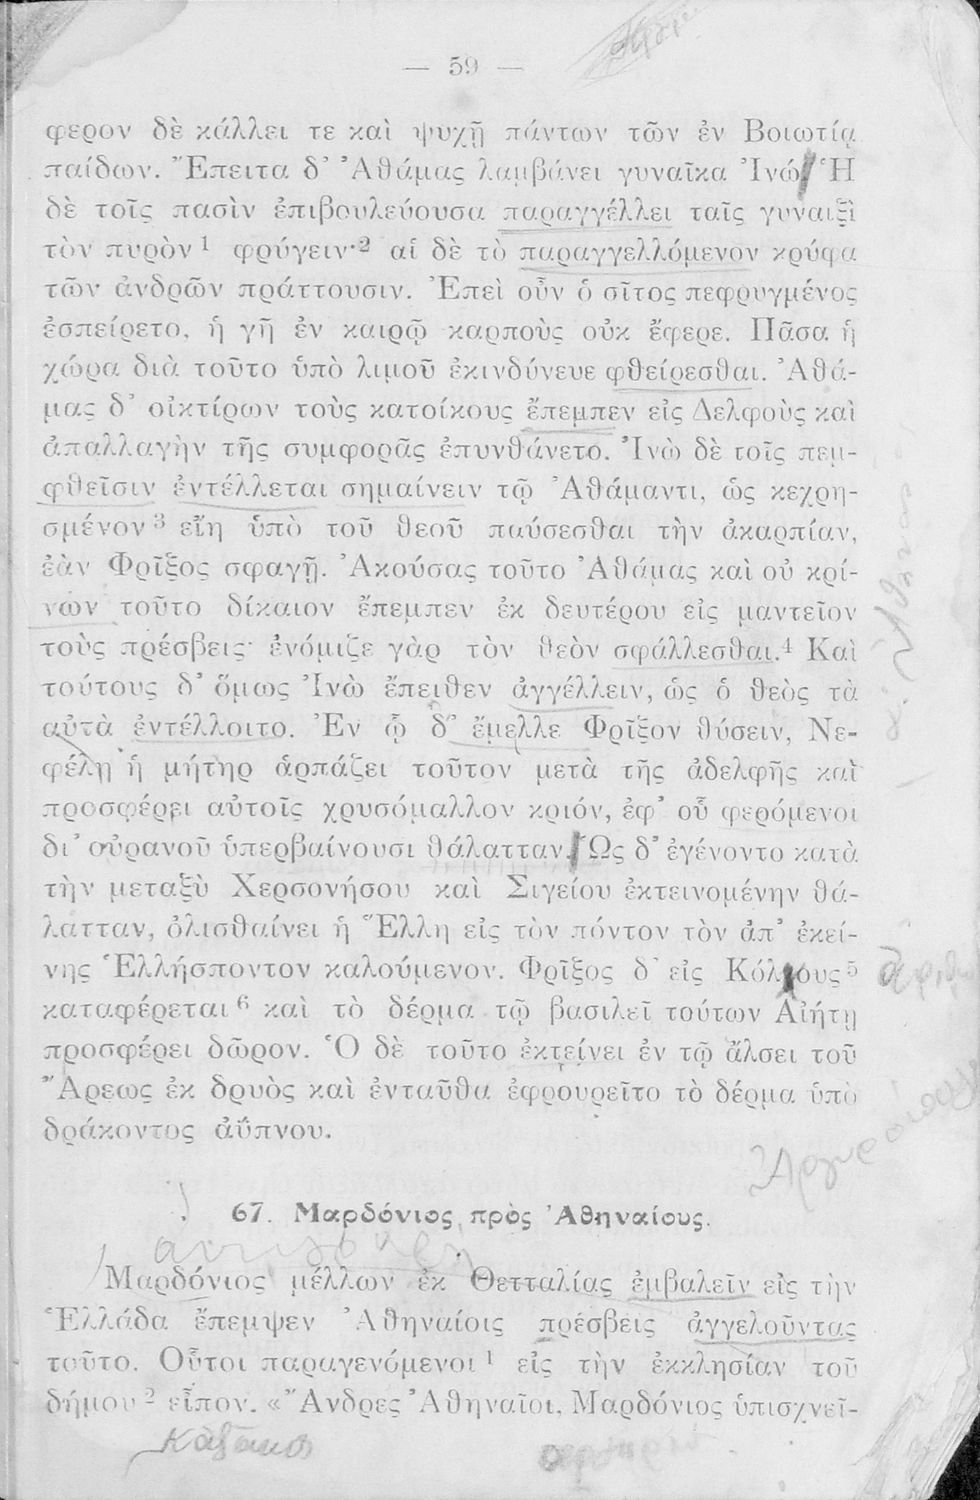 — 59 —
φερον δὲ κάλλει τε καὶ ψυχῇ πάντων τῶν ἐν Βοιωτίᾳ
παίδων. Ἔπειτα δ' Ἀθάμας λαμβάνει γυναῖκα Ἰνώ. Ἡ
δὲ τοῖς πασὶν ἐπιβουλεύουσα παραγγέλλει ταῖς γυναιξὶ
τὸν πυρὸν¹ φρύγειν·² αἱ δὲ τὸ παραγγελλόμενον κρύφα
τῶν ἀνδρῶν πράττουσιν. Ἐπεὶ οὖν ὁ σῖτος πεφρυγμένος
ἐσπείρετο, ἡ γῆ ἐν καιρῷ καρποὺς οὐκ ἔφερε. Πᾶσα ἡ
χώρα διὰ τοῦτο ὑπὸ λιμοῦ ἐκινδύνευε φθείρεσθαι. Ἀθά-
μας δ' οἰκτίρων τοὺς κατοίκους ἔπεμπεν εἰς Δελφοὺς καὶ
ἀπαλλαγὴν τῆς συμφορᾶς ἐπυνθάνετο. Ἰνὼ δὲ τοῖς πεμ-
φθεῖσιν ἐντέλλεται σημαίνειν τῷ Ἀθάμαντι, ὡς κεχρη-
σμένον³ εἴη ὑπὸ τοῦ θεοῦ παύσεσθαι τὴν ἀκαρπίαν,
ἐὰν Φρῖξος σφαγῇ. Ἀκούσας τοῦτο Ἀθάμας καὶ οὐ κρί-
νων τοῦτο δίκαιον ἔπεμπεν ἐκ δευτέρου εἰς μαντεῖον
τοὺς πρέσβεις· ἐνόμιζε γὰρ τὸν θεὸν σφάλλεσθαι.⁴ Καὶ
τούτους δ' ὅμως Ἰνὼ ἔπειθεν ἀγγέλλειν, ὡς ὁ θεὸς τὰ
αὐτὰ ἐντέλλοιτο. Ἐν ᾧ δ' ἔμελλε Φρῖξον θύσειν, Νε-
φέλη ἡ μήτηρ ἁρπάζει τοῦτον μετὰ τῆς ἀδελφῆς καὶ
προσφέρει αὐτοῖς χρυσόμαλλον κριόν, ἐφ' οὗ φερόμενοι
δι' οὐρανοῦ ὑπερβαίνουσι θάλατταν. Ὡς δ' ἐγένοντο κατὰ
τὴν μεταξὺ Χερσονήσου καὶ Σιγείου ἐκτεινομένην θά-
λατταν, ὀλισθαίνει ἡ Ἕλλη εἰς τὸν πόντον τὸν ἀπ' ἐκεί-
νης Ἑλλήσποντον καλούμενον. Φρῖξος δ' εἰς Κόλχους⁵
καταφέρεται⁶ καὶ τὸ δέρμα τῷ βασιλεῖ τούτων Αἰήτῃ
προσφέρει δῶρον. Ὁ δὲ τοῦτο ἐκτείνει ἐν τῷ ἄλσει τοῦ
Ἄρεως ἐκ δρυὸς καὶ ἐνταῦθα ἐφρουρεῖτο τὸ δέρμα ὑπὸ
δράκοντος ἀΰπνου.
67. Μαρδόνιος πρὸς Ἀθηναίους.
Μαρδόνιος μέλλων ἐκ Θετταλίας ἐμβαλεῖν εἰς τὴν
Ἑλλάδα ἔπεμψεν Ἀθηναίοις πρέσβεις ἀγγελοῦντας
τοῦτο. Οὗτοι παραγενόμενοι¹ εἰς τὴν ἐκκλησίαν τοῦ
δήμου² εἶπον. «Ἄνδρες Ἀθηναῖοι, Μαρδόνιος ὑπισχνεῖ-